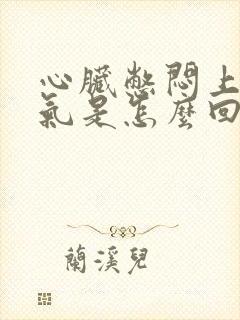 心臟憋悶上
氣是怎麼回
蘭溪兒